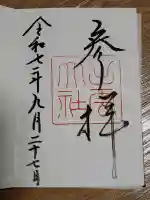 参拝
令和七年九月二十七日